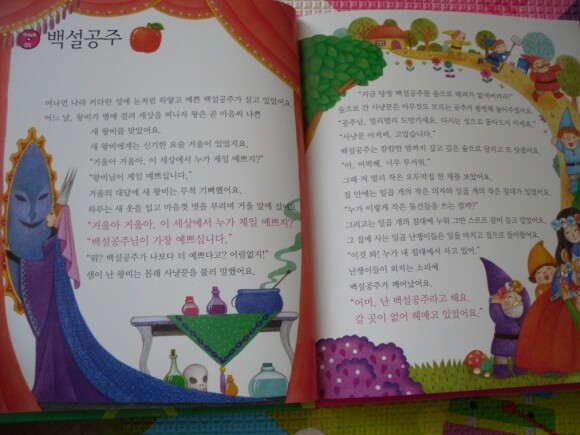 백설공주
머나먼 나라 커다란 성에 눈처럼 하얗고 예쁜 백설공주가 살고 있었어요.
어느 날, 왕비가 병에 걸려 세상을 떠나자 왕은 곧 마음씨 나쁜
새 왕비를 맞았어요.
새 왕비에게는 신기한 요술 거울이 있었지요.
"거울아 거울아, 이 세상에서 누가 제일 예쁘지?"
"왕비님이 제일 예쁘십니다."
거울의 대답에 새 왕비는 무척 기뻐했어요.
하루는 새 옷을 입고 마음껏 멋을 부리며 거울 앞에 섰어요.
"거울아 거울아, 이 세상에서 누가 제일 예쁘지?"
"백설공주님이 가장 예쁘십니다."
"뭐? 백설공주가 나보다 더 예쁘다고? 어림없지!"
샘이 난 왕비는 몰래 사냥꾼을 불러 말했어요.
"지금 당장 백설공주를 숲으로 데려가 없애버려라!"
숲으로 간 사냥꾼은 아무것도 모르는 공주가 불쌍해 놓아주었어요.
"공주님, 멀리멀리 도망가세요. 다시는 성으로 돌아오지 마세요."
"사냥꾼 아저씨, 고맙습니다."
백설공주는 캄캄한 밤까지 깊고 깊은 숲으로 달리고 또 달렸어요.
"아, 어떡해. 너무 무서워."
그때 저 멀리 작은 오두막집 한 채를 보았어요.
집 안에는 일곱 개의 작은 의자와 일곱 개의 작은 침대가 있었어요.
"누가 이렇게 작은 물건들을 쓰는 걸까?"
그러고는 일곱 개의 침대에 누워 그만 스르르 잠이 들고 말았어요.
그 집에 사는 일곱 난쟁이들은 일을 마치고 집으로 돌아왔어요.
"이것 봐! 누가 내 침대에서 자고 있어."
난쟁이들이 외치는 소리에
백설공주가 깨어났어요.
"어머, 난 백설공주라고 해요.
갈 곳이 없어 헤매고 있었어요."